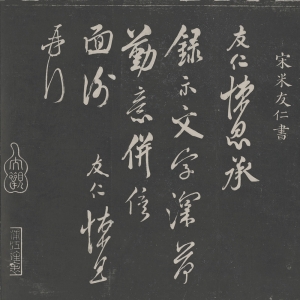 宋米友仁書
友仁悚息承
録示文字深荷
勤意併俟
面謝 友仁悚息